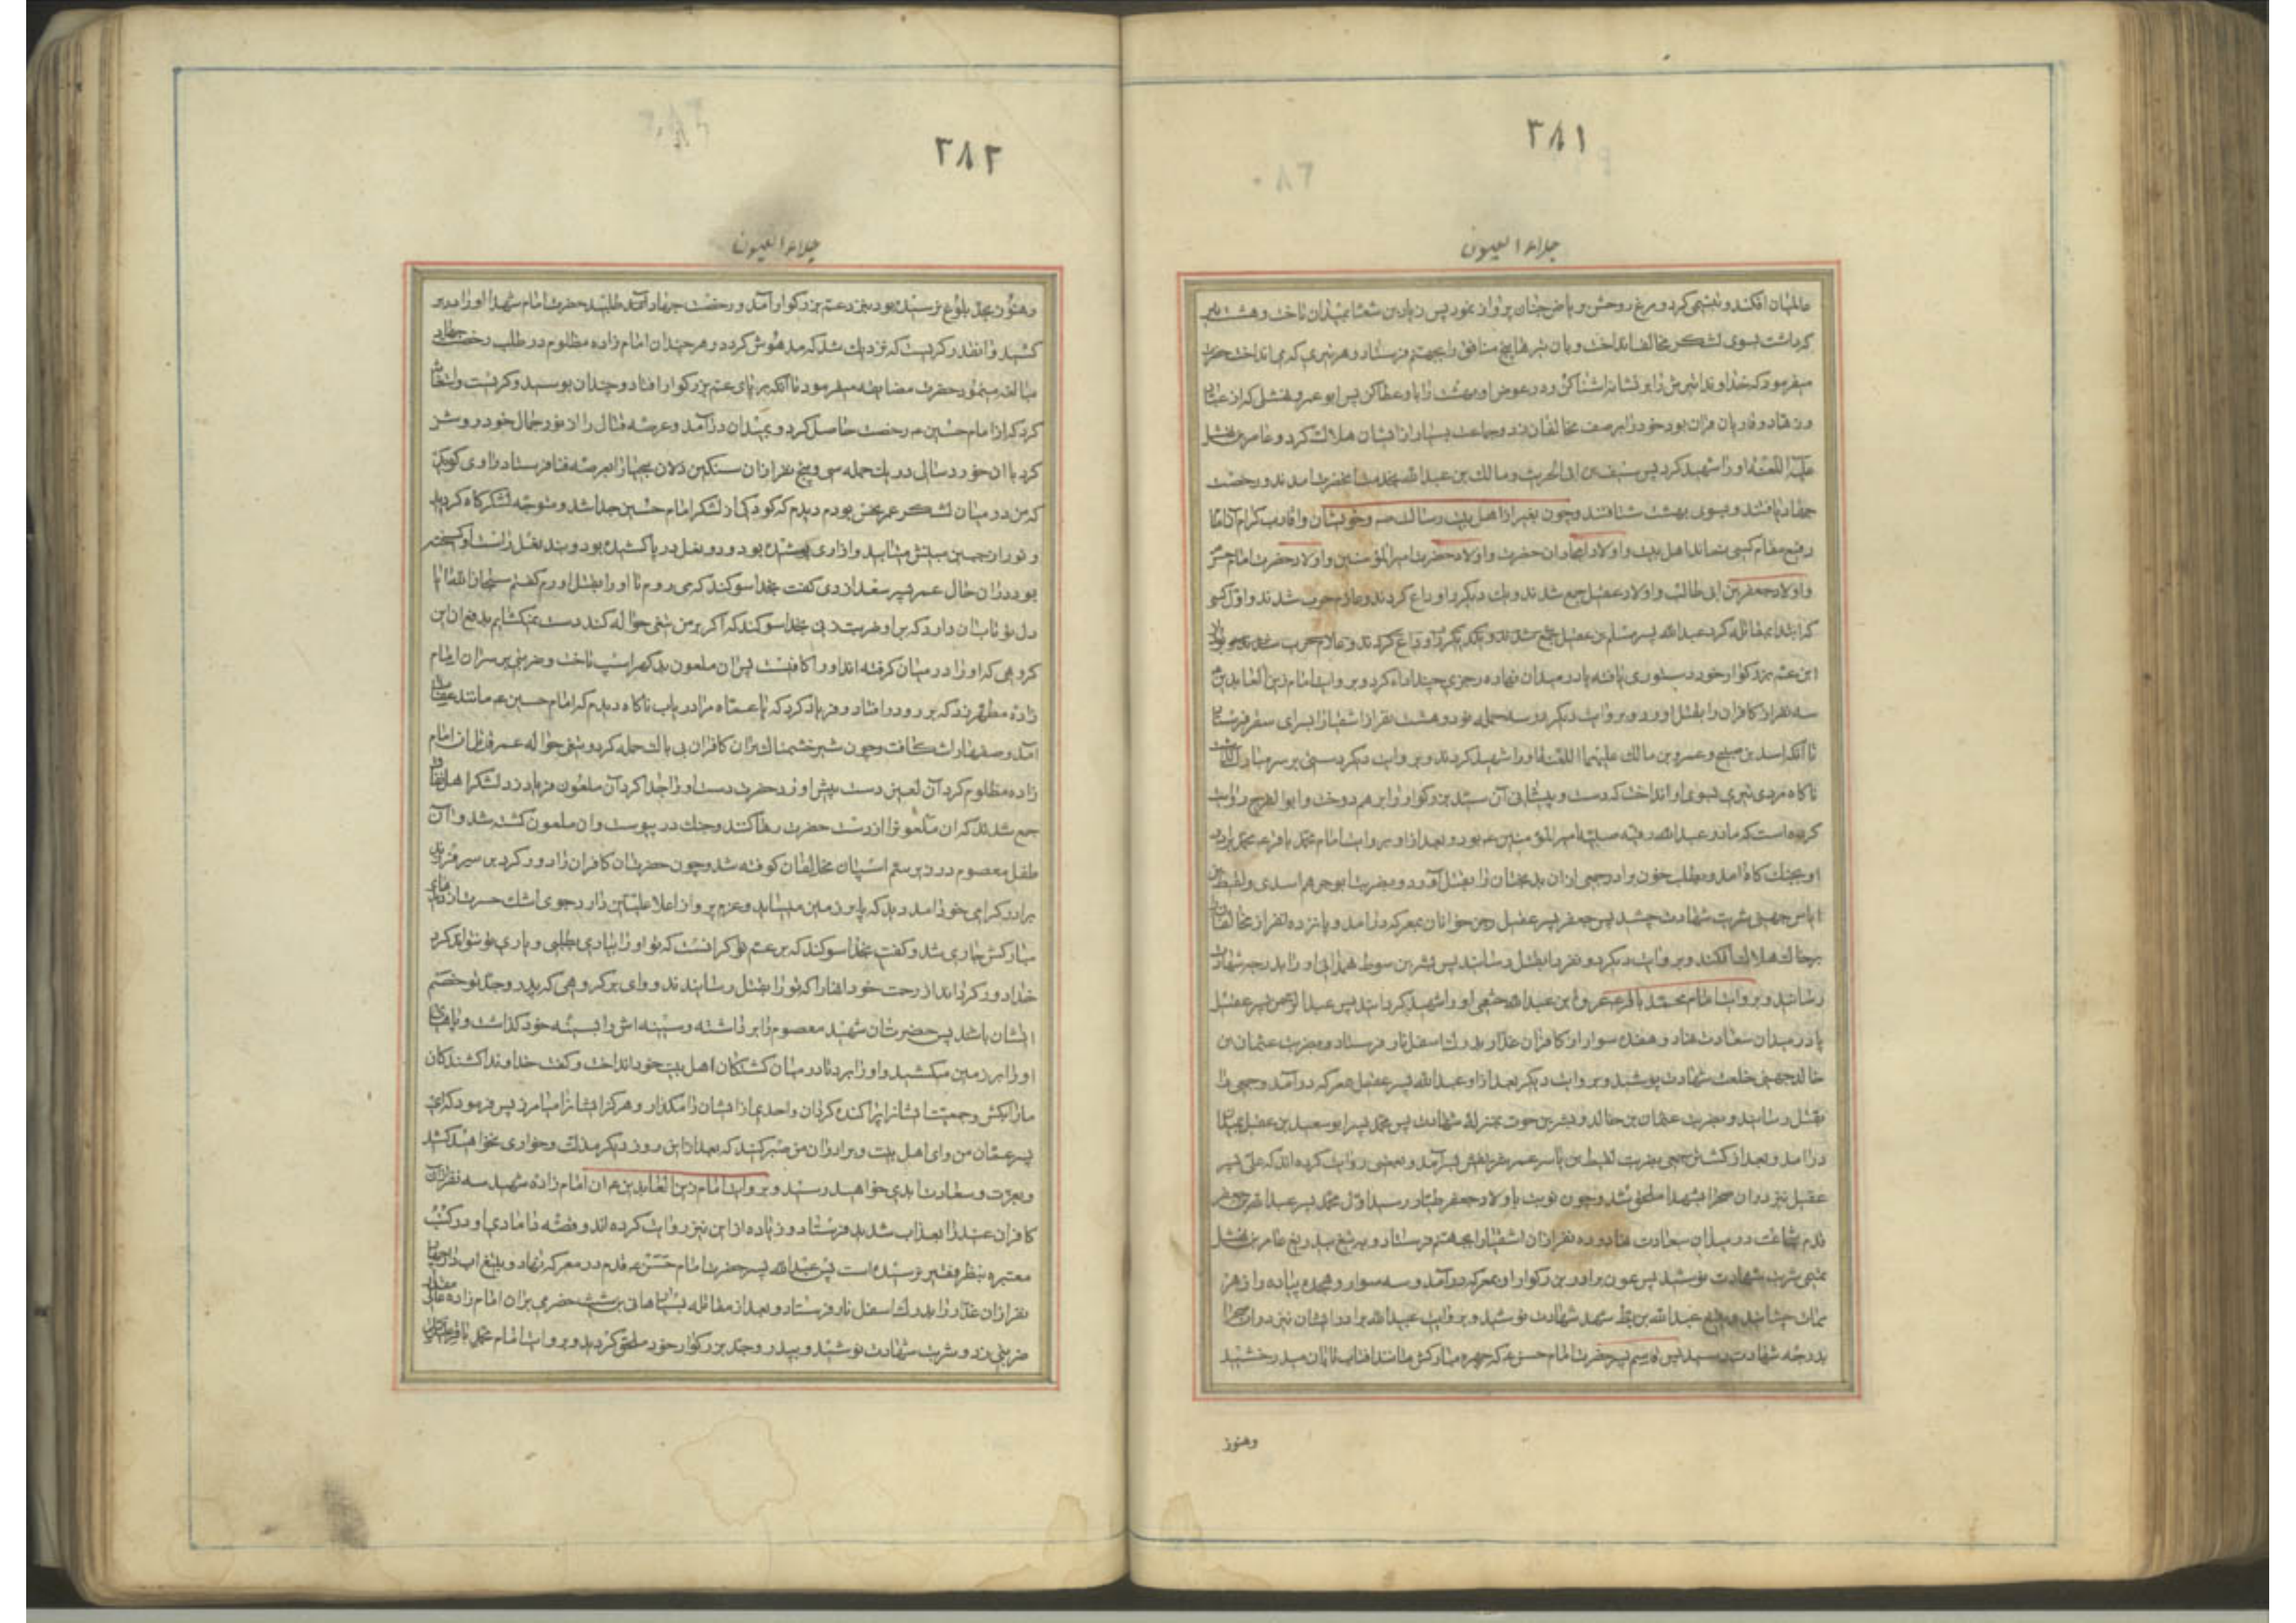 ۲۸۱
جلاء العیون
عالمیان افکند و تبسمی کرد و مرغ روحش بریاض جنان پرواز نمود پس زیاد بن شعثا بمیدان تاخت و هشت تیر
که داشت بسوی لشکر مخالف انداخت و بان تیرها پنج منافق را بجهنم فرستاد و هر تیری که می انداخت حضرت
میفرمود که خداوندا تیرش را بر نشانه اشنا کن و در عوض او بهشت را باو عطا کن پس ابو عمرو نهشلی که از عباد
و زهاد و قاریان قران بود خود را بر صف مخالفان زد و جماعت بسیار از ایشان هلاک کرد و عامر بن نهشل
علیه اللعنة او را شهید کرد پس سیف بن ابی الحرث و مالک بن عبد الله بخدمت انحضرت امدند و رخصت
جهاد یافتند و بسوی بهشت شتافتند و چون بغیر از اهل بیت رسالت ص و خویشان و اقارب کرام امام
رفیع مقام کسی نماند اهل بیت و اولاد امجاد ان حضرت و اولاد حضرت امیر المؤمنین و اولاد حضرت امام حسن
و اولاد جعفر بن ابی طالب و اولاد عقیل جمع شدند و یک دیکر را وداع کردند و عازم حرب شدند و اول کسی
که ابتدا بمقاتله کرد عبد الله پسر مسلم بن عقیل جمع شدند و یکدیکر را وداع کردند و عازم حرب شدند
ابن عم بزرکوار خود دستوری یافته پا در میدان نهاده رجزی چند اداء کرد و بروایت امام زین العابدین
سه نفر از کافران را بقتل اورد و بروایت دیکر در سه حمله نود و هشت نفر از اشقیا را بسرای سقر فرستاد
تا انکه اسد بن و عمرو بن مالک علیهما اللعنة او را شهید کردند و بروایت دیکر دستی بر سر مبارک داشت
ناکاه مردی تیری بسوی او انداخت که دست و پیشانی آن سید بزرکوار را بر هم دوخت و ابو الفرج روایت
کرده است که مادر عبد الله رقیه صبیه امیر المؤمنین ع بود و بعد از او بروایت امام محمد باقر ع محمد برادر
او بجنک کاه امد و بطلب خون برادر جمعی ازان بدبختان را بقتل آورد و بضربت ابو جرهم اسدی و لقیط بن
ایاس جهنی شربت شهادت چشید پس جعفر پسر عقیل رجز خوانان بمعرکه درامد و پانزده نفر از مخالفان
بر خاک هلاک افکند و بروایت دیکر دو نفر را بقتل رسانید پس بشر بن سوط همدانی او را بدرجه شهادت
رسانید و بروایت امام محمد باقر ع عروة بن عبد الله خثعمی او را شهید کردانید پس عبد الرحمن پسر عقیل
پا در میدان سعادت نهاد و هفده سوار از کافران غدار بدرک اسفل نار فرستاد و بضربت عثمان بن
خالد جهنی خلعت شهادت پوشید و بروایت دیکر بعد از او عبد الله پسر عقیل بمعرکه درآمد و جمعی را
بقتل رسانید و بضربت عثمان بن خالد و بشر بن حوت بمنزلهٔ شهادت پس محمد پسر ابو سعید بن عقیل بمیدان
درامد و بعد از کشتن جمعی بضربت لقیط بن یاسر عمر شریفش بسر آمد و بعضی روایت کرده اند که علی پسر
عقیل نیز دران صحرا بشهدا ملحق شد و چون نوبت باولاد جعفر طیار رسید اول محمد پسر عبد الله بن جعفر
قدم شجاعت در میدان سعادت نهاد و ده نفر ازان اشقیا را بجهنم فرستاد و به تیغ بیدریغ عامر بن نهشل
تمیمی شربت شهادت نوشید پس عون برادر بزرکوار او بمعرکه درآمد و سه سوار و هجده پیاده را زهر
ممات چشانید و عبد الله بن شهد شهادت نوشید و بروایت عبید الله برادر ایشان نیز دران صحرا
بدرجه شهادت رسید پس قاسم پسر حضرت امام حسن ع که چهره مبارکش مانند افتاب تابان میدرخشید
وهنوز
۲۸۲
جلاء العیون
و هنوز بحد بلوغ نرسیده بود بنزد عم بزرکوار آمد و رخصت جهاد طلبید حضرت امام شهدا او را در بر
کشید و انقدر کریست که نزدیک شد که مدهوش کردد و هر چند ان امام زاده مظلوم در طلب رخصت جهاد
مبالغه مینمود حضرت مضایقه میفرمود تا آنکه بر پای عم بزرکوار افتاد و چندان بوسید و کریست و استغاثه
کرد که از امام حسین ع رخصت حاصل کرد و بمیدان درآمد و عرصه قتال را از نور جمال خود روشن
کرد با ان خورد سالی در یک حمله سی و پنج نفر ازان سنکین دلان بیحیا را بعرصه فنا فرستاد راوی کوید
که من در میان لشکر عمر نحس بودم دیدم که کودکی از لشکر امام حسین جدا شد و متوجه لشکرکاه کردید
و نور از جبین مبینش میتابید و ازاری پوشیده بود و دو نعل در پا کشیده بود و بند نعل راست او کسیخته
بود دران حال عمر پسر سعد ازدی کفت بخدا سوکند که می روم تا او را بقتل اورم کفتم سبحان الله ایا
دل تو تاب ان دارد که بر او ضربت زنی بخدا سوکند که اکر بر من تیغی حواله کند دست نمیکشایم بدفع ان این
کروهی که او را در میان کرفته اند او را کافیست پس ان ملعون بدکهر اسپ تاخت و ضربتی بر سر ان امام
زادهٔ مطهر زد که بر رو در افتاد و فریاد کرد که یا عماه مرا دریاب ناکاه دیدم که امام حسین ع مانند عقاب
آمد و صفها را شکافت و چون شیر خشمناک بران کافران بی باک حمله کرد و تیغی حواله عمر قاتل ان امام
زاده مظلوم کرد آن لعین دست پیش اورد حضرت دست او را جدا کرد آن ملعون فریاد زد لشکر اهل نفاق
جمع شدند که ان ملعون را از دست حضرت رها کنند و جنک در پیوست و ان ملعون کشته شد و آن
طفل معصوم در زیر سم اسپان مخالفان کوفته شد و چون حضرت ان کافران را دور کرد بر سر فرزند
برادر کرامی خود امد دید که پا بر زمین میساید و عزم پرواز اعلا علیین دارد جوی اشک حسرت از دیده
مبارکش جاری شد و کفت بخدا سوکند که بر عم تو کرانست که تو او را بیاری بطلبی و یاری تو نتواند کرد
خدا دور کرداند از رحمت خود انها را که تو را بقتل رسانیدند و وای بر کروهی که پدر و جد تو خصم
ایشان باشد پس حضرت ان شهید معصوم را بر داشته و سینه اش را بسینه خود کذاشت و پاهای
او را بر زمین میکشید و او را برد تا در میان کشتکان اهل بیت خود انداخت و کفت خداوندا کشندکان
ما را بکش و جمعیت ایشانرا پراکنده کردان و احدی از ایشان را مکذار و هرکز ایشانرا میامرز پس فرمود که ای
پسر عمان من و ای اهل بیت و برادران من صبر کنید که بعد از این روز دیکر مذلت و خواری نخواهید کشید
و بعزت و سعادت ابدی خواهید رسید و بروایت امام زین العابدین ع ان امام زاده شهید سه نفر ازان
کافران عنید را بعذاب شدید فرستاد و زیاده از این نیز روایت کرده اند و قصه دامادی او در کتب
معتبره بنظر فقیر نرسیده است پس عبد الله پسر حضرت امام حسن ع قدم در معرکه نهاد و بتیغ ابدار
نفر ازان غدار را بدرک اسفل نار فرستاد و بعد از مقاتله بسیار هانی بن شبث حضرمی بران امام زاده عالی مقدار
ضربتی زد و شربت شهادت نوشید و بپدر و جد بزرکوار خود ملحق کردید و بروایت امام محمد باقر